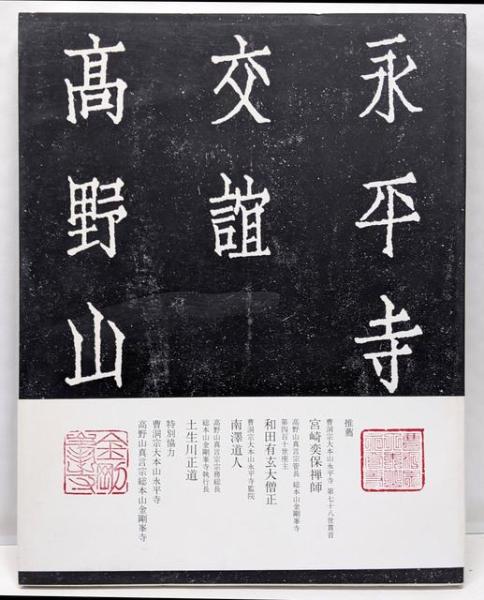 永平寺
交誼
髙野山
推薦
曹洞宗大本山永平寺 第七十八世貫首
宮崎奕保禅師
高野山真言宗管長 総本山金剛峯寺
第四百十世座主
和田有玄大僧正
曹洞宗大本山永平寺監院
南澤道人
高野山真言宗宗務総長
総本山金剛峯寺執行長
土生川正道
特別協力
曹洞宗大本山永平寺
高野山真言宗総本山金剛峯寺
金剛峯寺